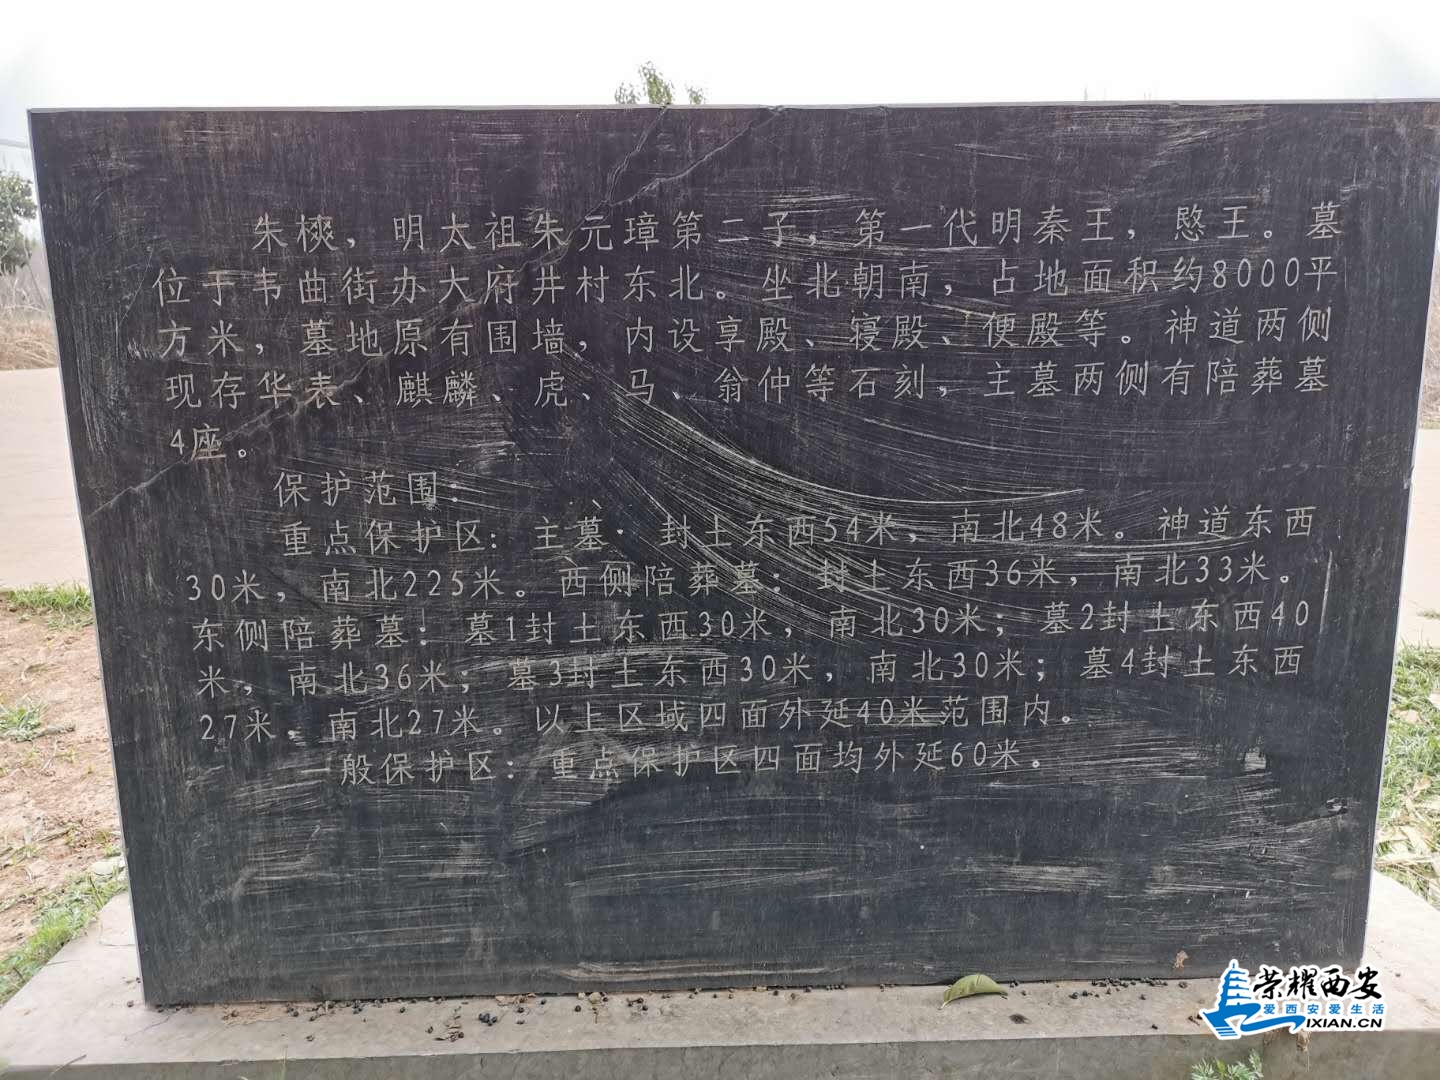 朱樉，明太祖朱元璋第二子，第一代明秦王，愍王。墓
位于韦曲街办大府井村东北。坐北朝南，占地面积约8000平
方米，墓地原有围墙，内设享殿、寝殿、便殿等。神道两侧
现存华表、麒麟、虎、马、翁仲等石刻，主墓两侧有陪葬墓
4座。
保护范围：
重点保护区：主墓：封土东西54米，南北48米。神道东西
30米，南北225米。西侧陪葬墓：封土东西36米，南北33米。
东侧陪葬墓：墓1封土东西30米，南北30米；墓2封土东西40
米，南北36米；墓3封土东西30米，南北30米；墓4封土东西
27米，南北27米。以上区域四面外延40米范围内。
一般保护区：重点保护区四面均外延60米。
荣耀西安
爱西安爱生活
IXIAN.CN